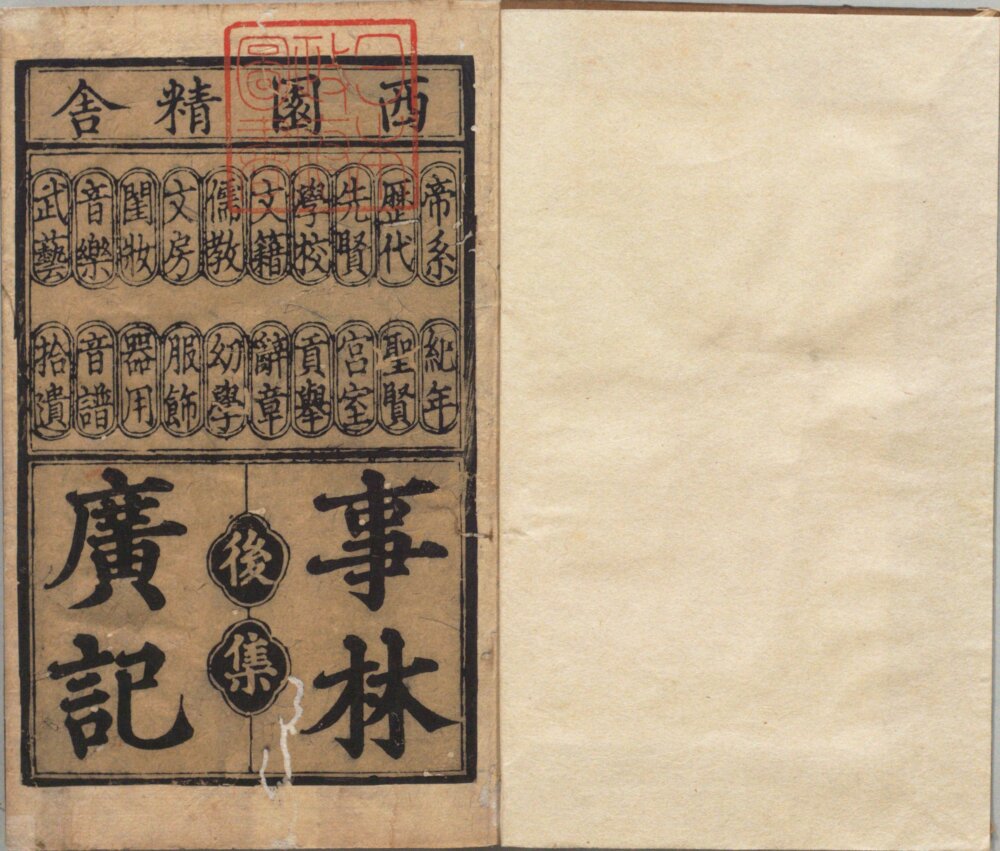 西園精舍
帝系
歷代
先賢
學校
文籍
儒教
文房
閨妝
音樂
武藝
紀年
聖賢
宮室
貢舉
辭章
幼學
服飾
器用
音譜
拾遺
事林
後集
廣記